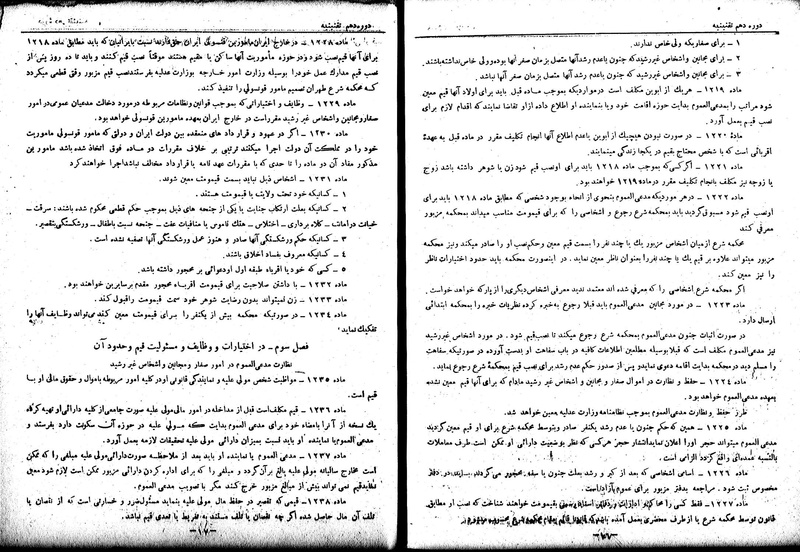 دوره دهم تقنینیه
۱ - برای صغاریکه ولی خاص ندارند.
۲ - برای مجانین واشخاص غیررشید که جنون یاعدم رشدآنها متصل بزمان صغر آنها بوده وولی خاص نداشته باشند.
۳ - برای مجانین واشخاص غیررشید که جنون یاعدم رشد آنها متصل بزمان صغر آنها نباشد.
ماده ۱۲۱۹ - هریك از ابوین مکلف است درمواردیکه بموجب ماده قبل باید برای اولاد آنها قیم معین
شود مراتب را بمدعی‌العموم بدایت حوزه اقامت خود ویا بنماینده او اطلاع داده ازاو تقاضا نمایند که اقدام لازم برای
نصب قیم بعمل آورد.
ماده ۱۲۲۰ - در صورت نبودن هیچیك از ابوین یا عدم اطلاع آنها انجام تکلیف مقرر در ماده قبل به عهدهٔ
اقربائی است که با شخص محتاج بقیم در یکجا زندگی مینمایند.
ماده ۱۲۲۱ - اگر کسی که بموجب ماده ۱۲۱۸ باید برای اونصب قیم شود زن یا شوهر داشته باشد زوج
یا زوجه نیز مکلف بانجام تکلیف مقرر درماده ۱۲۱۹ خواهند بود.
ماده ۱۲۲۲ - درهر موردیکه مدعی‌العموم بنحوی از انحاء بوجود شخصی که مطابق ماده ۱۲۱۸ باید برای
اونصب قیم شود مسبوق گردید باید بمحکمه شرع رجوع و اشخاصی را که برای قیمومت مناسب میداند بمحکمه مزبور
معرفی کند
محکمه شرع ازمیان اشخاص مزبور یك یا چند نفر را بسمت قیم معین وحکم نصب او را صادر میکند ونیز محکمه
مزبور میتواند علاوه بر قیم یك یا چند نفررا بعنوان ناظر معین نماید. در اینصورت محکمه باید حدود اختیارات ناظر
را نیز معین کند.
اگر محکمه شرع اشخاصی را که معرفی شده اند معتمد ندید معرفی اشخاص دیگری را از پارکه خواهد خواست.
ماده ۱۲۲۳ - در مورد مجانین مدعی‌العموم باید قبلا رجوع به خبره کرده نظریات خبره را بمحکمه ابتدائی
ارسال دارد.
در صورت اثبات جنون مدعی‌العموم بمحکمه شرع رجوع میکند تا نصب قیم شود. در مورد اشخاص غیررشید
نیز مدعی‌العموم مکلف است که قبلا بوسیله مطلعین اطلاعات کافیه در باب سفاهت او بدست آورده در صورتیکه سفاهت
را مسلم دید در محکمه بدایت اقامه دعوی نماید و پس از صدور حکم عدم رشد برای نصب قیم بمحکمه شرع رجوع نماید.
ماده ۱۲۲۴ - حفظ و نظارت در اموال صغار و مجانین و اشخاص غیر رشید مادام که برای آنها قیم معین نشده
بعهده مدعی‌العموم خواهد بود.
طرز حفظ و نظارت مدعی‌العموم بموجب نظامنامه وزارت عدلیه معین خواهد شد.
ماده ۱۲۲۵ - همین که حکم جنون یا عدم رشد یکنفر صادر وبتوسط محکمه شرع برای او قیم معین گردید
مدعی‌العموم میتواند حجر اورا اعلان نماید انتشار حجر هر کسی که نظر بوضعیت دارائی او ممکن است طرف معاملات
بالنسبه عمده‌ای واقع گردد الزامی است.
ماده ۱۲۲۶ - اسامی اشخاصی که بعد از کبر و رشد بعلت جنون یا سفه محجور می گردند باید در دفتر
مخصوص ثبت شود. مراجعه بدفتر مزبور برای عموم آزاد است.
ماده ۱۲۲۷ - فقط کسی را محاکم و ادارات و دفاتر اسناد رسمی بقیمومت خواهند شناخت که نصب او مطابق
قانون توسط محکمه شرع یا از طرف محضری بعمل آمده باشد
دوره دهم تقنینیه
ماده ۱۲۲۸ - در خارج ایران مامورین قنسولی ایران حق دارند نسبت بایرانیان که باید مطابق ماده ۱۲۱۸
برای آنها قیم نصب شود و در حوزه مأموریت آنها ساکن یا مقیم هستند موقتاً نصب قیم کنند و باید تا ده روز پس از
نصب قیم مدارك عمل خودرا بوسیله وزارت امور خارجه بوزارت عدلیه بفرستند نصب قیم مزبور وقتی قطعی میگردد
که محکمه شرع طهران تصمیم مامور قونسولی را تنفیذ کند.
ماده ۱۲۲۹ - وظایف و اختیاراتی که بموجب قوانین ونظامات مربوطه در مورد دخالت مدعیان عمومی در امور
صغار ومجانین واشخاص غیر رشید مقرراست در خارج ایران بعهده مامورین قونسولی خواهد بود.
ماده ۱۲۳۰ - اگر در عهود و قرارداد های منعقده بین دولت ایران و دولتی که مامور قونسولی ماموریت
خود را در مملکت آن دولت اجرا میکند ترتیبی بر خلاف مقررات دو ماده فوق اتخاذ شده باشد مامورین
مذکور مفاد آن دو ماده را تا حدی که با مقررات عهد نامه یا قرارداد مخالف نباشد اجرا خواهند کرد
ماده ۱۲۳۱ - اشخاص ذیل نباید بسمت قیمومت معین شوند.
۱ - کسانیکه خود تحت ولایت یا قیمومت هستند.
۲ - کسانیکه بعلت ارتکاب جنایت یا یکی از جنحه های ذیل بموجب حکم قطعی محکوم شده باشند: سرقت -
خیانت در امانت - کلاه برداری - اختلاس - هتك ناموس یا منافیات عفت - جنحه نسبت باطفال - ورشکستگی بتقصیر.
۳ - کسانیکه حکم ورشکستگی آنها صادر و هنوز عمل ورشکستگی آنها تصفیه نشده است.
۴ - کسانیکه معروف بفساد اخلاق باشند.
۵ - کسی که خود یا اقرباء طبقه اول او دعوائی بر محجور داشته باشد.
ماده ۱۲۳۲ - با داشتن صلاحیت برای قیمومت اقرباء محجور مقدم برسایرین خواهند بود.
ماده ۱۲۳۳ - زن نمیتواند بدون رضایت شوهر خود سمت قیمومت را قبول کند.
ماده ۱۲۳۴ - در صورتیکه محکمه بیش از یکنفر را برای قیمومت معین کند می‌تواند وظایف آنها را
تفکیك نماید.
فصل سوم - در اختیارات و وظایف و مسئولیت قیم وحدود آن
نظارت مدعی‌العموم در امور صغار ومجانین و اشخاص غیر رشید
ماده ۱۲۳۵ - مواظبت شخص مولی علیه و نمایندگی قانونی او در کلیه امور مربوطه باموال و حقوق مالی او با
قیم است.
ماده ۱۲۳۶ - قیم مکلف است قبل از مداخله در امور مالی مولی علیه صورت جامعی از کلیه دارائی او تهیه کرده
یك نسخه از آنرا بامضاء خود برای مدعی‌العموم بدایت که مولی علیه در حوزه آن سکونت دارد بفرستد و
مدعی‌العموم یا نماینده او باید نسبت بمیزان دارائی مولی علیه تحقیقات لازمه بعمل آورد.
ماده ۱۲۳۷ - مدعی‌العموم یا نماینده او باید بعد از ملاحظه صورت دارائی مولی علیه مبلغی را که ممکن
است مخارج سالیانه مولی علیه بالغ برآن گردد و مبلغی را که برای اداره کردن دارائی مزبور ممکن است لازم شود معین
نماید قیم نمی تواند بیش از مبالغ مزبور خرج کند مگر با تصویب مدعی‌العموم.
ماده ۱۲۳۸ - قیمی که تقصیر در حفظ مال مولی علیه بنماید مسئول ضرر و خسارتی است که از نقصان یا
تلف آن مال حاصل شده اگر چه نقصان یا تلف مستند به تفریط یا تعدی قیم نباشد.